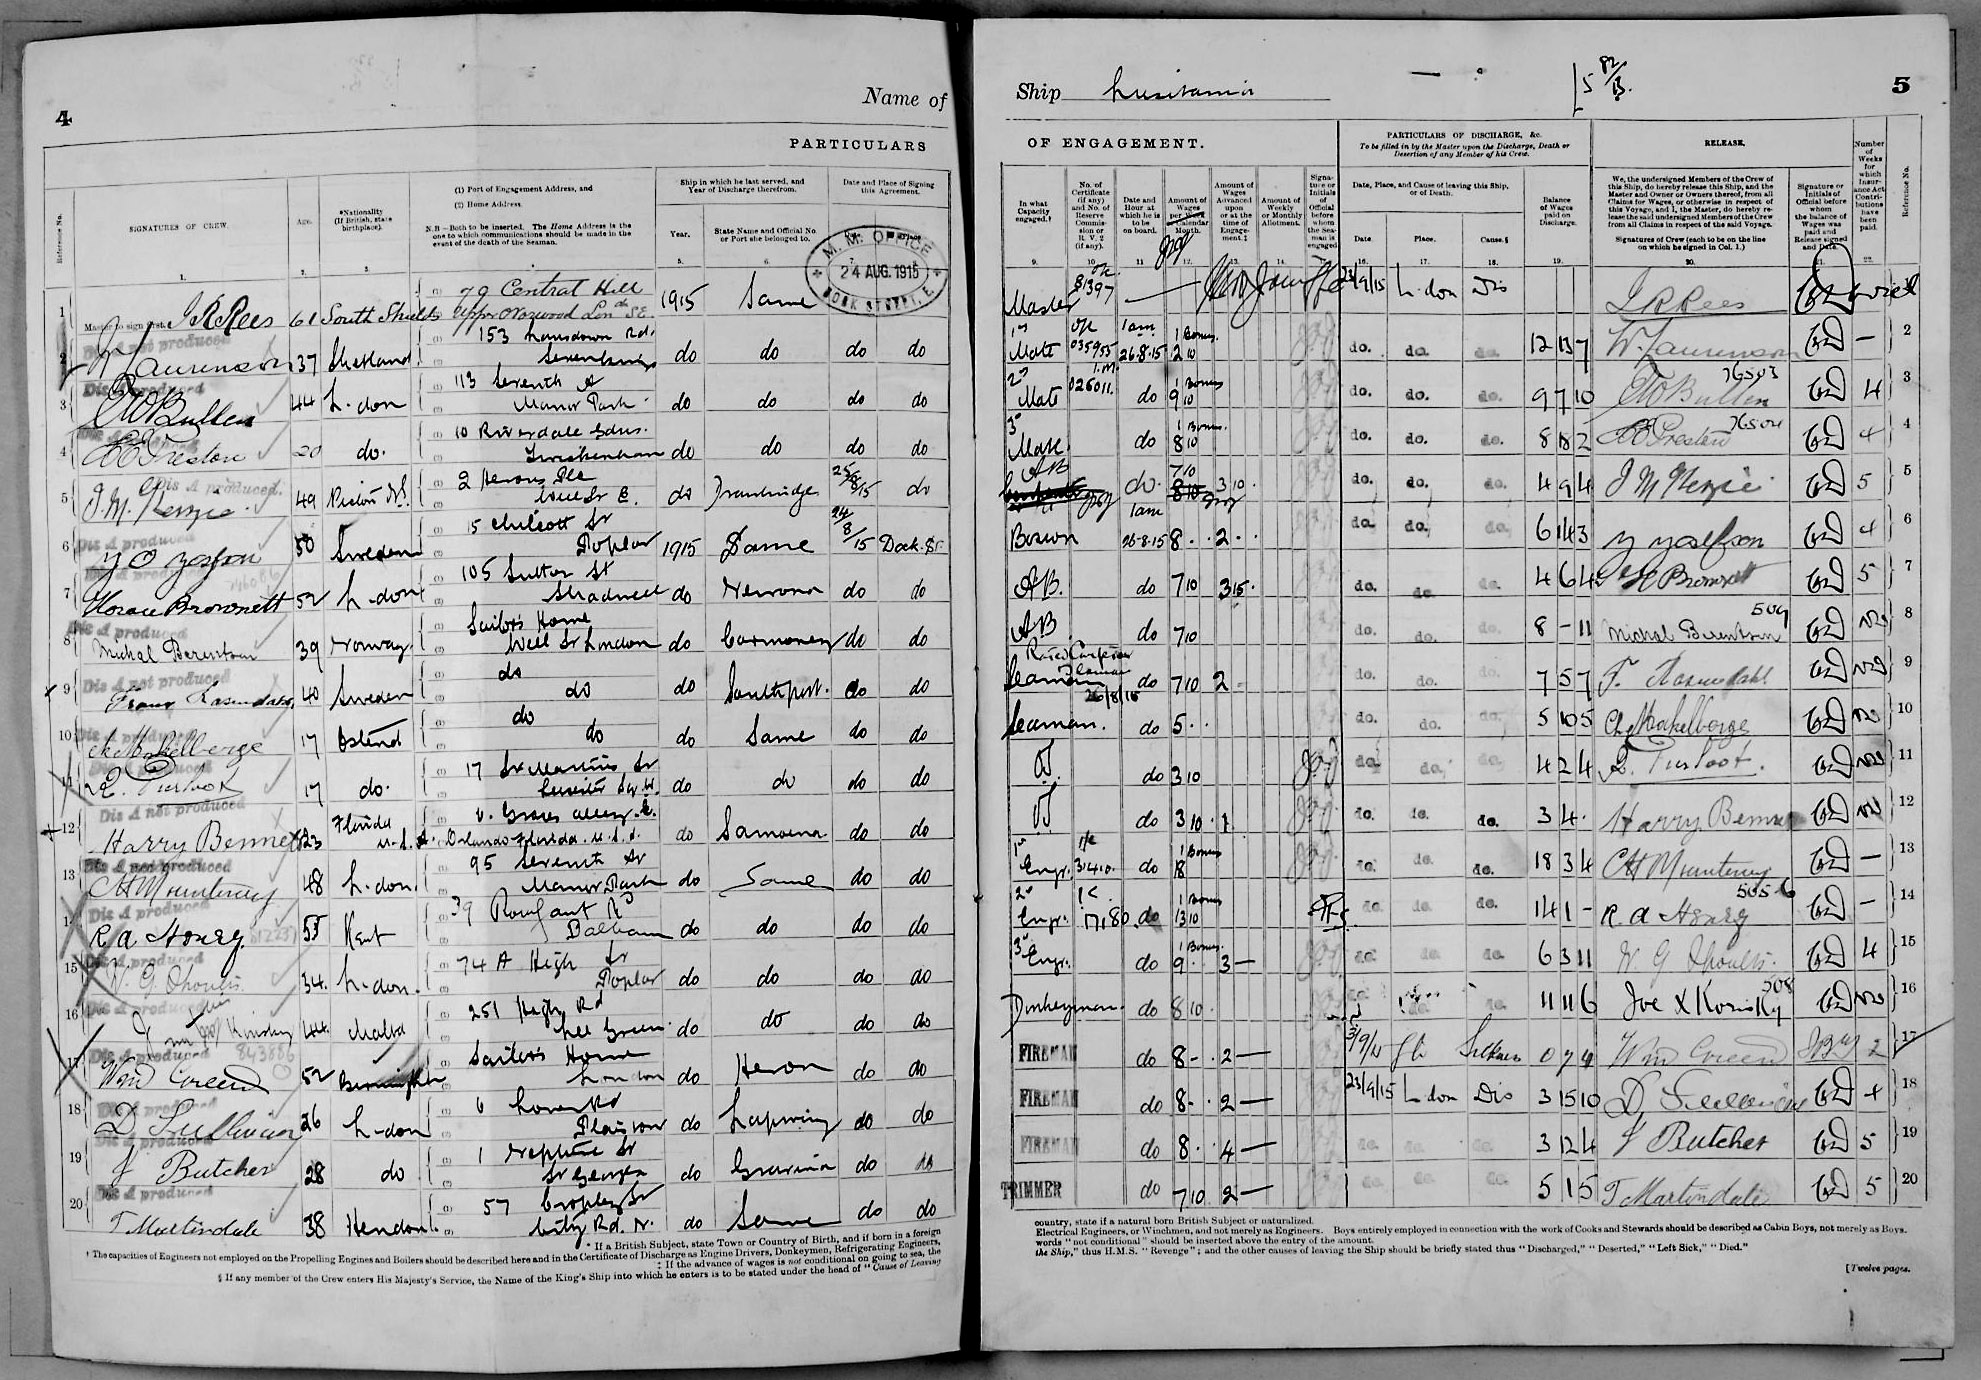 4
Name of
PARTICULARS
Reference No.
SIGNATURES OF CREW.
Age.
*Nationality
(If British, state
birthplace).
(1) Port of Engagement Address, and
(2) Home Address.
N.B.—Both to be inserted. The Home Address is the
one to which communications should be made in the
event of the death of the Seaman.
Ship in which he last served, and
Year of Discharge therefrom.
Year.
State Name and Official No.
or Port she belonged to.
Date and Place of Signing
this Agreement.
M. M. OFFICE
24 AUG. 1915
DOCK STREET, E.
1. 2. 3. 5. 6.
1 Master to sign first. J R Rees 61 South Shields 79 Central Hill
Upper Norwood Lon SE 1915 Same
Dis A not produced
2 W Laurenson 37 Shetland 153 Lansdown Rd.
do do do do
Dis A produced
3 Bullen 44 L.don 113 Seventh Av
Manor Park do do do do
4 Preston 20 do. 10 Riverdale Gdns.
Twickenham do do do do
Dis A produced.
5 J. McKenzie 49 2
Well St E. do 25/8/15 do
Dis A produced
6 Y O Yosefson 50 Sweden 15 Chilcott St
Poplar 1915 Same 24/8/15 Dock St
Dis A produced
7 Horace Brownett 52 L.don 105 Sutton St
Shadwell do do do
Dis A produced
8 Michal Berentsen 39 Norway Sailors Home
Well St London do do do
Dis A not produced
9 Rosendahl 40 Sweden do
do do Southport. do do
Dis A produced
10 Ch Maskelberge 17 Ostend do
do do Same do do
11 R. Turloot 17 do. 17 St Martins St
Leicester Sq W. do do do do
Dis A not produced
12 Harry Bennet 23 Florida
U.S.A. Orlando Florida U.S.A. do Samoena do do
Dis A not produced
13 C H Mounteney 48 L.don. 95 Seventh Av
Manor Park do Same do do
Dis A produced
14 R A Henry 55 Kent 39 Rowfant Rd
Balham do do do do
Dis A produced
15 W. G. 34. L.don. 74 A High St
Poplar do do do do
Dis A produced
16 44 Malta 251 High Rd
Lee Green do do do do
Dis A produced 843886
17 Wm Green 52 Birmingham Sailors Home
London do Heron do do
Dis A produced
18 D Sullivan 26 L.don 6 Lower Rd
Plaistow do Lapwing do do
Dis A produced
19 J Butcher 28 do 1 Neptune St
St Georges do do do
Dis A produced
20 T Martindale 38 Hendon. 57 Cropley St
City Rd. N. do Same do do
* If a British Subject, state Town or Country of Birth, and if born in a foreign
† The capacities of Engineers not employed on the Propelling Engines and Boilers should be described here and in the Certificate of Discharge as Engine Drivers, Donkeymen, Refrigerating Engineers,
‡ If the advance of wages is not conditional on going to sea, the
§ If any member of the Crew enters His Majesty's Service, the Name of the King's Ship into which he enters is to be stated under the head of "Cause of Leaving
Ship Lusitania
5
OF ENGAGEMENT.
PARTICULARS OF DISCHARGE, &c.
To be filled in by the Master upon the Discharge, Death or
Desertion of any Member of his Crew.
RELEASE.
In what
Capacity
engaged.†
No. of
Certificate
(if any)
and No. of
Reserve
Commis-
sion or
R. V. 2
(if any).
Date and
Hour at
which he is
to be
on board.
Amount of
Wages
per Week
or Calendar
Month.
Amount of
Wages
Advanced
upon
or at the
time of
Engage-
ment.‡
Amount of
Weekly
or Monthly
Allotment.
Signa-
ture or
Initials
of
Official
before
whom
the Sea-
man is
engaged
Date, Place, and Cause of leaving this Ship,
or of Death.
Date. Place. Cause.§
Balance
of Wages
paid on
Discharge.
We, the undersigned Members of the Crew of
this Ship, do hereby release this Ship, and the
Master and Owner or Owners thereof, from all
Claims for Wages, or otherwise in respect of
this Voyage, and I, the Master, do hereby re-
lease the said undersigned Members of the Crew
from all Claims in respect of the said Voyage.
Signatures of Crew (each to be on the line
on which he signed in Col. 1.)
Signature or
Initials of
Official before
whom
the balance of
Wages was
paid and
Release signed
and Date.
Number
of
Weeks
for
which
Insur-
ance Act
Contri-
butions
have
been
paid.
Reference No.
9. 10. 11 12. 13. 14. 16. 17. 18. 19. 20. 21. 22.
Master 81397 23/9/15 L.don Dis J R Rees
1st Mate 035955 1am 26.8.15 1 Bonus. do. do. do. 12 13 7 W. Laurenson — 2
2nd Mate 026011. do 1 Bonus 9 10 do. do. do. 9 7 10 Bullen 76503 4 3
3rd Mate. do 1 Bonus. 8 10 do. do. do. 8 8 2 Preston 76504 4 4
AB do. 7 10 3 10. do. do. do. 4 9 4 J McKenzie 5 5
Boswn 1am 26.8.15 8 . . 2 . do. do. do. 6 14 3 Y Yosefson 4 6
AB. do 7 10 3 15. do. do. do. 4 6 4 H Brownett 5 7
AB do 7 10 do. do. do. 8 - 11 Michal Berentsen 509 8
Seaman 26/8/15 do 7 10 2 - do. do. do. 7 5 7 F. Rosendahl 9
Seaman. do 5 . . do. do. do. 5 10 5 Ch Maskelberge 10
do 3 10 do. do. do. 4 2 4 R. Turloot. 11
do 3 10 . 1. do. do. do. 3 4 . Harry Bennet 12
1st Engr. 31410. do 1 Bonus 18 do. do. do. 18 3 4 C H Mounteney — 13
2nd Engr. 17180. do 1 Bonus 13 10 do. do. do. 14 1 - R A Henry 5056 — 14
3rd Engr. do 1 Bonus. 9 . . 3 — do. do. do. 6 3 11 W G 4 15
Donkeyman. do 8 10 . do. do. 11 11 6 Joe X 508 16
FIREMAN do 8 - . 2 — 0 7 9 Wm Green 2 17
FIREMAN do 8 - . 2 — 23/9/15 L don Dis 3 15 10 D Sullivan 4 18
FIREMAN do 8 . . 4 — do. do. do. 3 12 4 J Butcher 5 19
TRIMMER do 7 10 2 — do. do. do. 5 1 5 T Martindale 5 20
country, state if a natural born British Subject or naturalized.
Electrical Engineers, or Winchmen, and not merely as Engineers. Boys entirely employed in connection with the work of Cooks and Stewards should be described as Cabin Boys, not merely as Boys.
words "not conditional" should be inserted above the entry of the amount.
the Ship," thus H.M.S. "Revenge"; and the other causes of leaving the Ship should be briefly stated thus "Discharged," "Deserted," "Left Sick," "Died."
[Twelve pages.